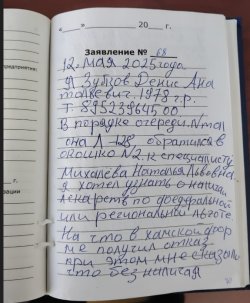 "___" ________ 20___ г.
Заявление № 68
12. мая 2025 года.
Я Зубков Денис Ана
толиевич 1978 г.р.
Т. 89523964500.
В порядке очереди. № тал
она Л-128, обратился в
окошко №2. к специалисту
Михалева Наталья Львовна.
Я хотел узнать о наличи
лекарств по федеральной
или региональной льготе
На что в хамской фор
ме получил отказ
при этом мне сказали
что без написал
предприятие: